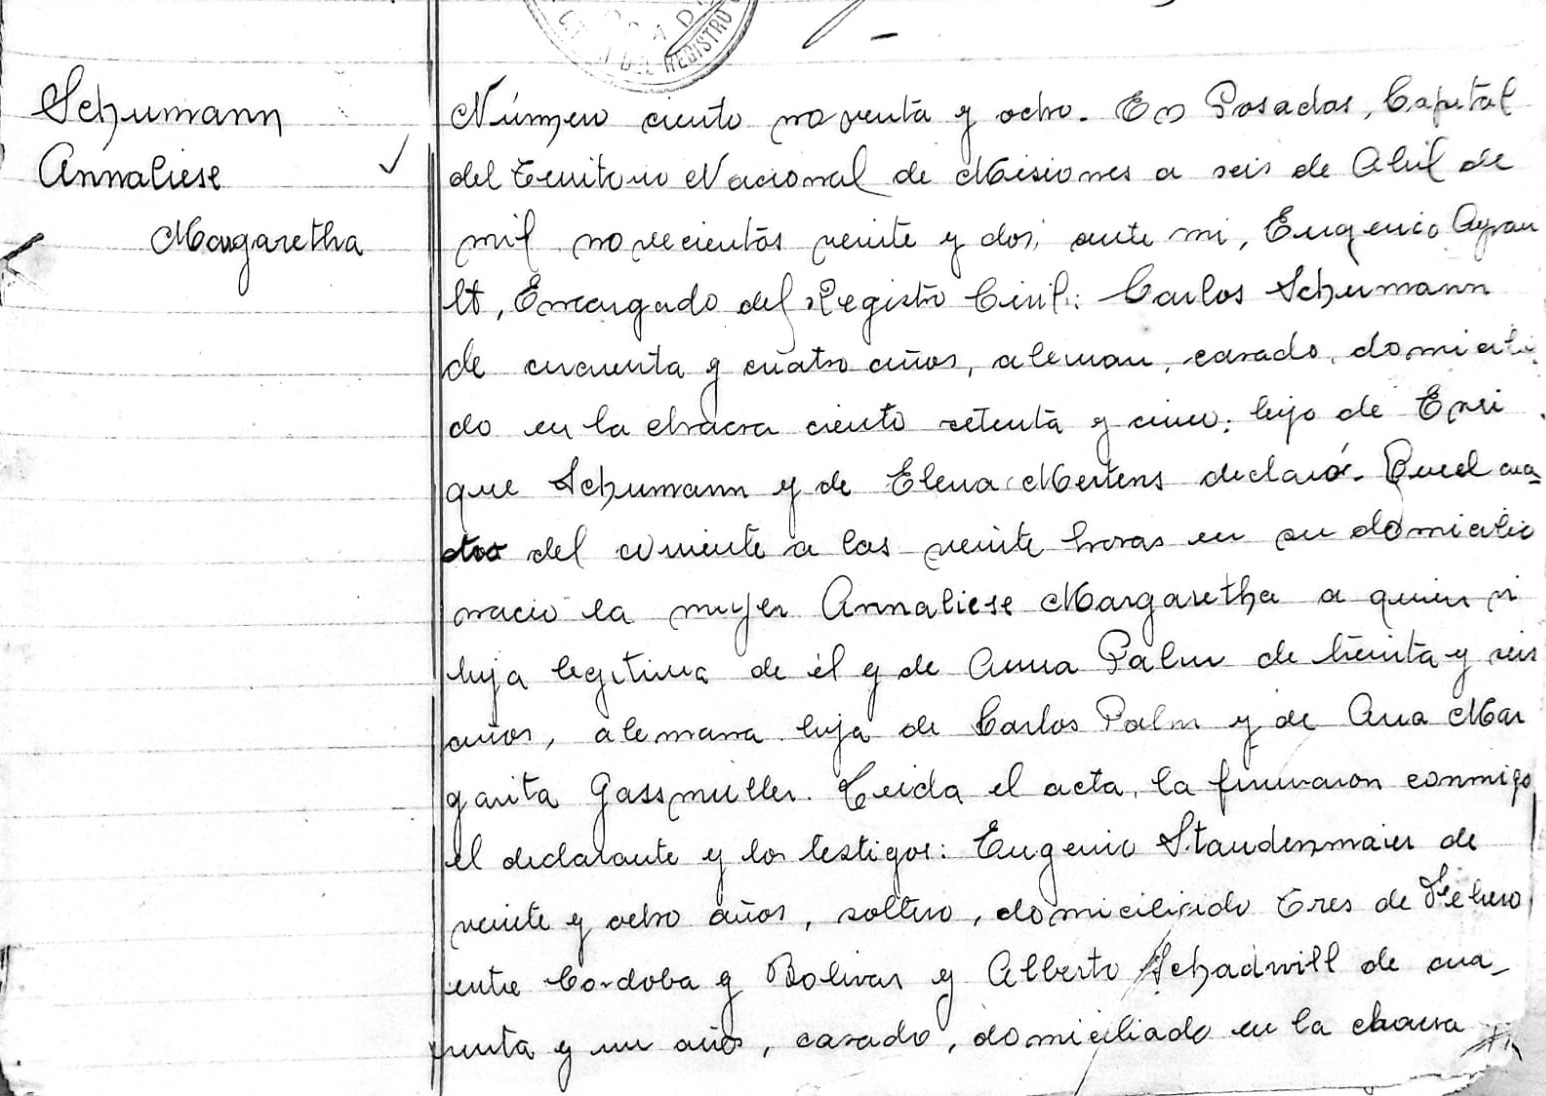 DEL REGISTRO
Schumann
Annaliese
Margaretha
Número ciento noventa y ocho. En Posadas, Capital
del Territorio Nacional de Misiones a seis de Abril de
mil novecientos veinte y dos, ante mi, Eugenio Ayrau
lt, Encargado del Registro Civil: Carlos Schumann
de cincuenta y cuatro años, aleman, casado, domicilia
do en la chacra ciento setenta y cinco: hijo de Enri
que Schumann y de Elena Mertens declaró. Que el cua=
tro del corriente a las veinte horas en su domicilio
nació la mujer Annaliese Margaretha a quien vi
hija legitima de él y de Anna Palm de treinta y seis
años, alemana hija de Carlos Palm y de Ana Mar
garita Gassmuller. Leida el acta, la firmaron conmigo
el declarante y los testigos: Eugenio Staudenmaier de
veinte y ocho años, soltero, domiciliado Tres de Febrero
entre Cordoba y Bolivar y Alberto Schadwill de cua_
renta y un años, casado, domiciliado en la chacra